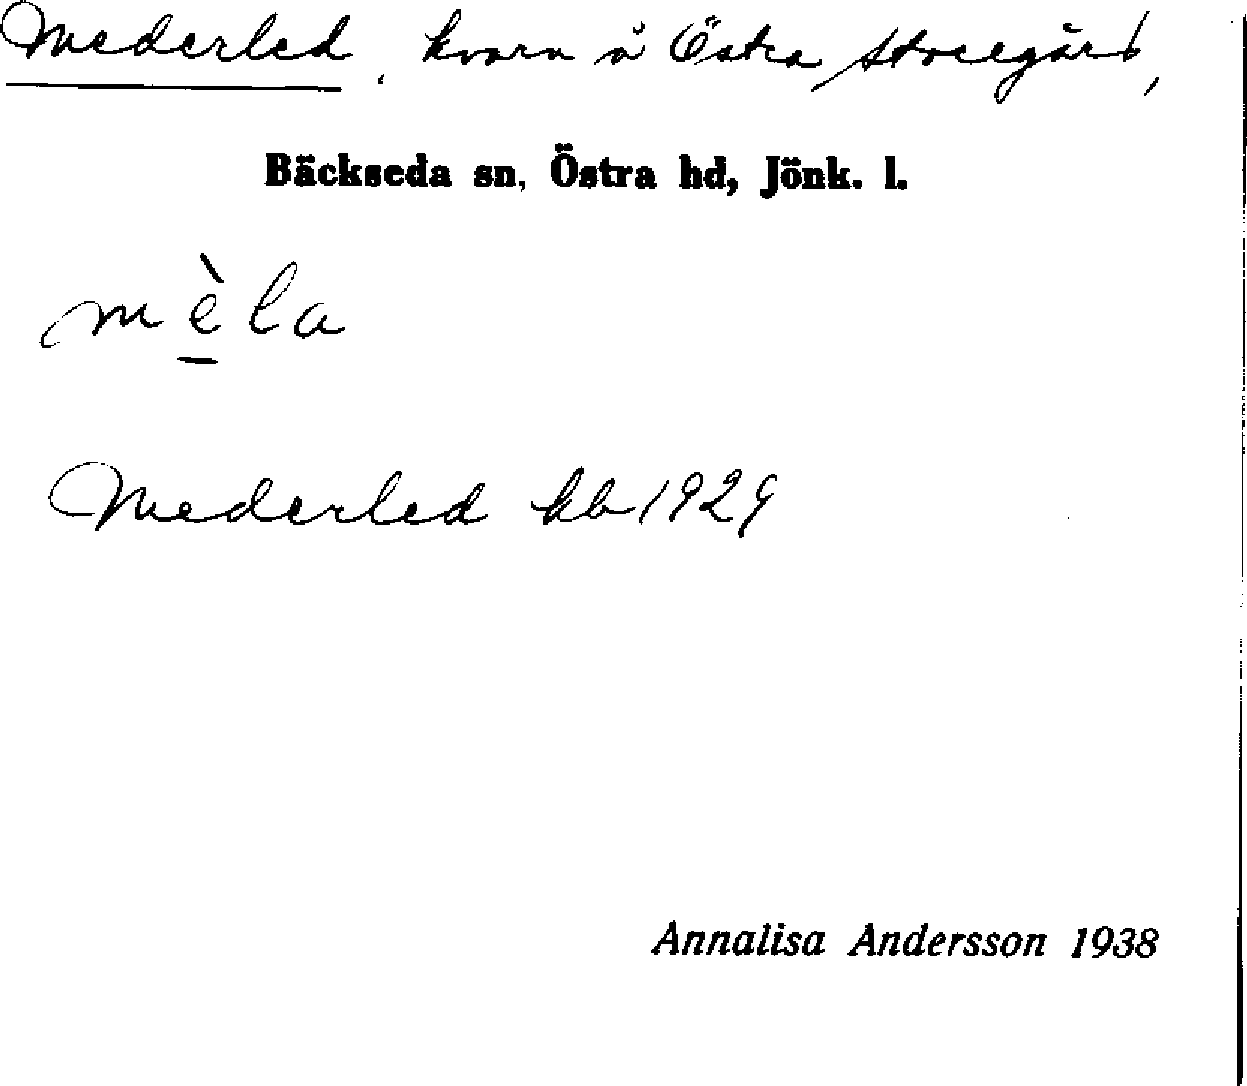 Mederled, kvarn å Östra Storegård,
Bäckseda sn, Östra hd, Jönk. l.
mèla
Mederled kb 1929
Annalisa Andersson 1938